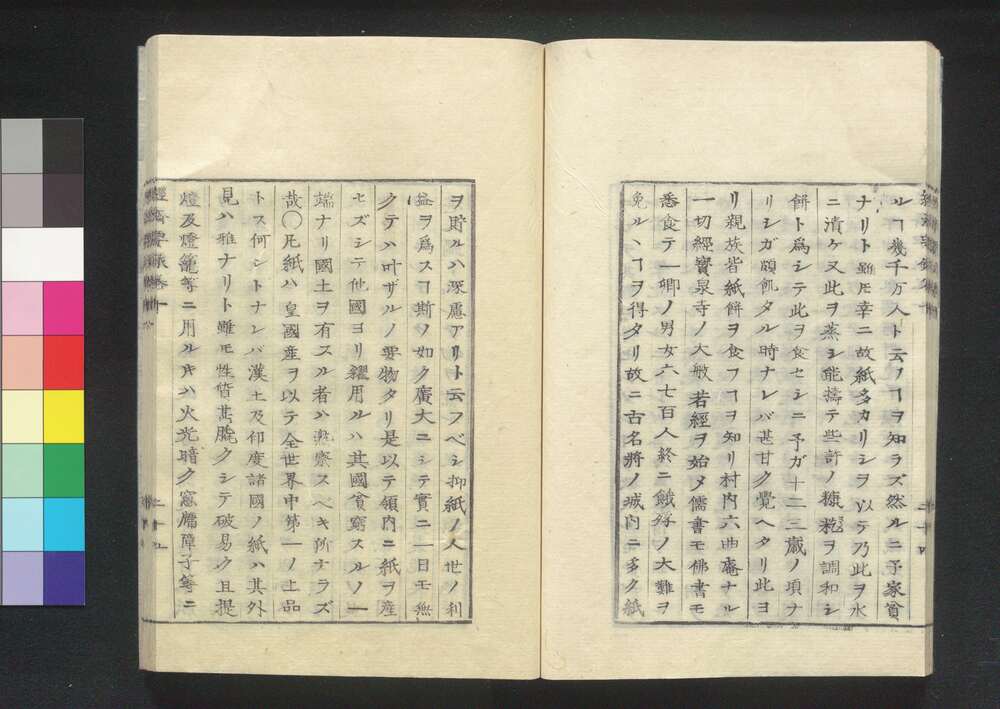 ルヿ幾千万人ト云フヿヲ知ラズ然ルニ予家貧
ナリト雖𪜈幸ニ故紙多カリシヲ以テ乃此ヲ水
ニ漬ケ又此ヲ蒸シ能擣テ些許ノ糠粃ヲ調和シ
餅ト爲シテ此ヲ食セシニ予ガ十二三歳ノ項ナ
リシガ頗飢タル時ナレバ甚甘ク覺ヘタリ此ヨ
リ親族皆紙餅ヲ食フヿヲ知リ村内六曲庵ナル
一切經寳泉寺ノ大般若經ヲ始メ儒書モ佛書モ
悉食テ一郷ノ男女六七百人終ニ餓殍ノ大難ヲ
免ルヽヿヲ得タリ故ニ古名將ノ城内ニ多ク紙
ヲ貯ルハ深慮アリト云フベシ抑紙ノ人世ノ利
益ヲ爲スヿ斯ノ如ク廣大ニシテ實ニ一日モ無
クテハ叶ザルノ要物タリ是以テ領内ニ紙ヲ産
セズシテ他國ヨリ糴用ルハ其國貧窮スルノ一
端ナリ國土ヲ有スル者ハ熟察スベキ所ナラズ
哉〇凡紙ハ皇國産ヲ以テ全世界中第一ノ上品
トス何ントナレバ漢土及印度諸國ノ紙ハ其外
見ハ雅ナリト雖モ性質甚脆クシテ破易ク且提
燈及燈籠等ニ用ルキハ火光暗ク窓牖障子等ニ